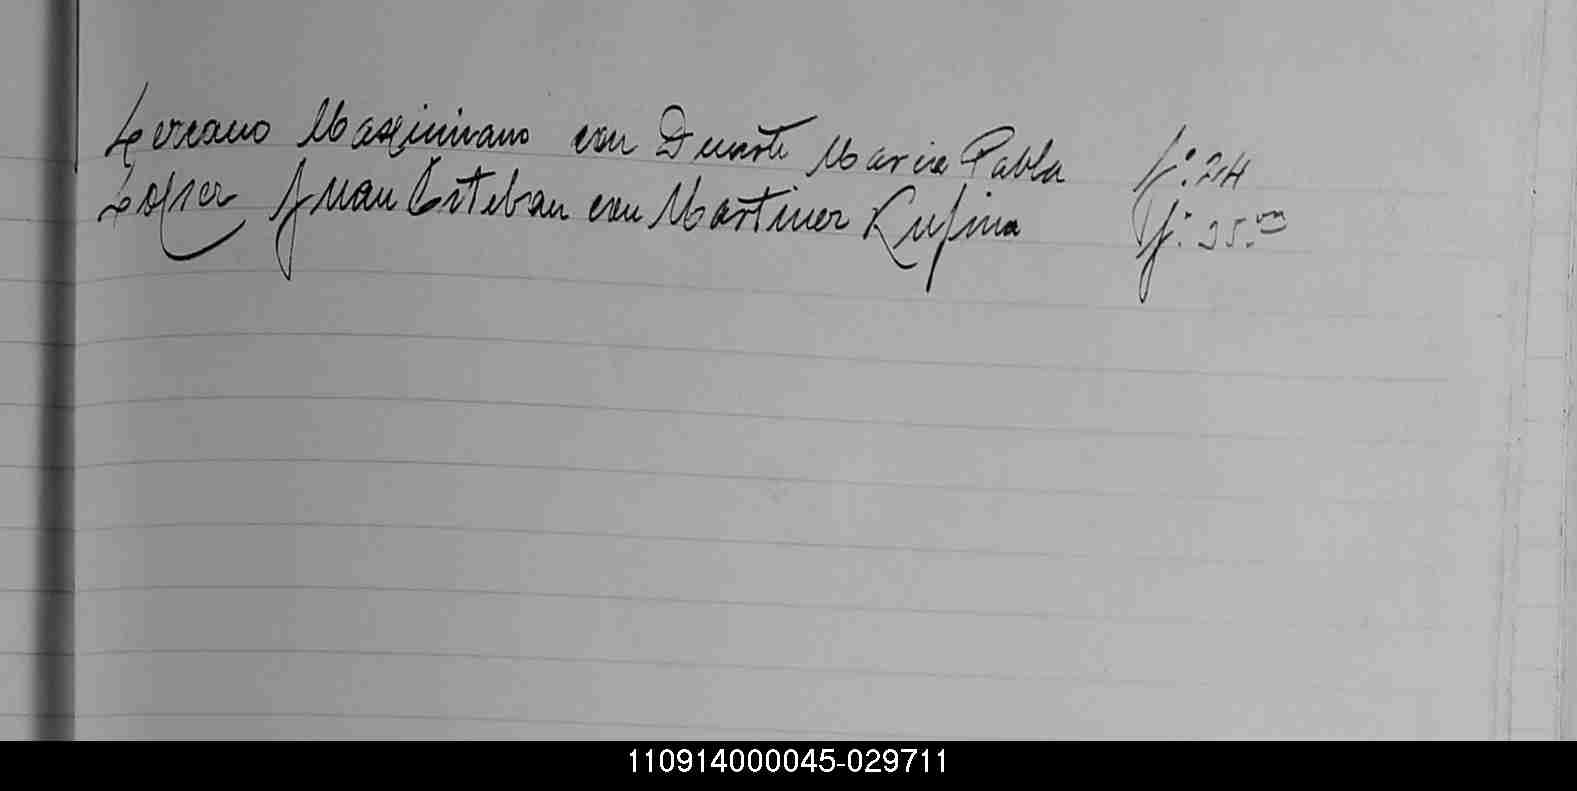 Lezcano Maximiano con Duarte Maria Pabla f: 24
Lopez Juan Esteban con Martinez Rufina f: 35.
110914000045-029711